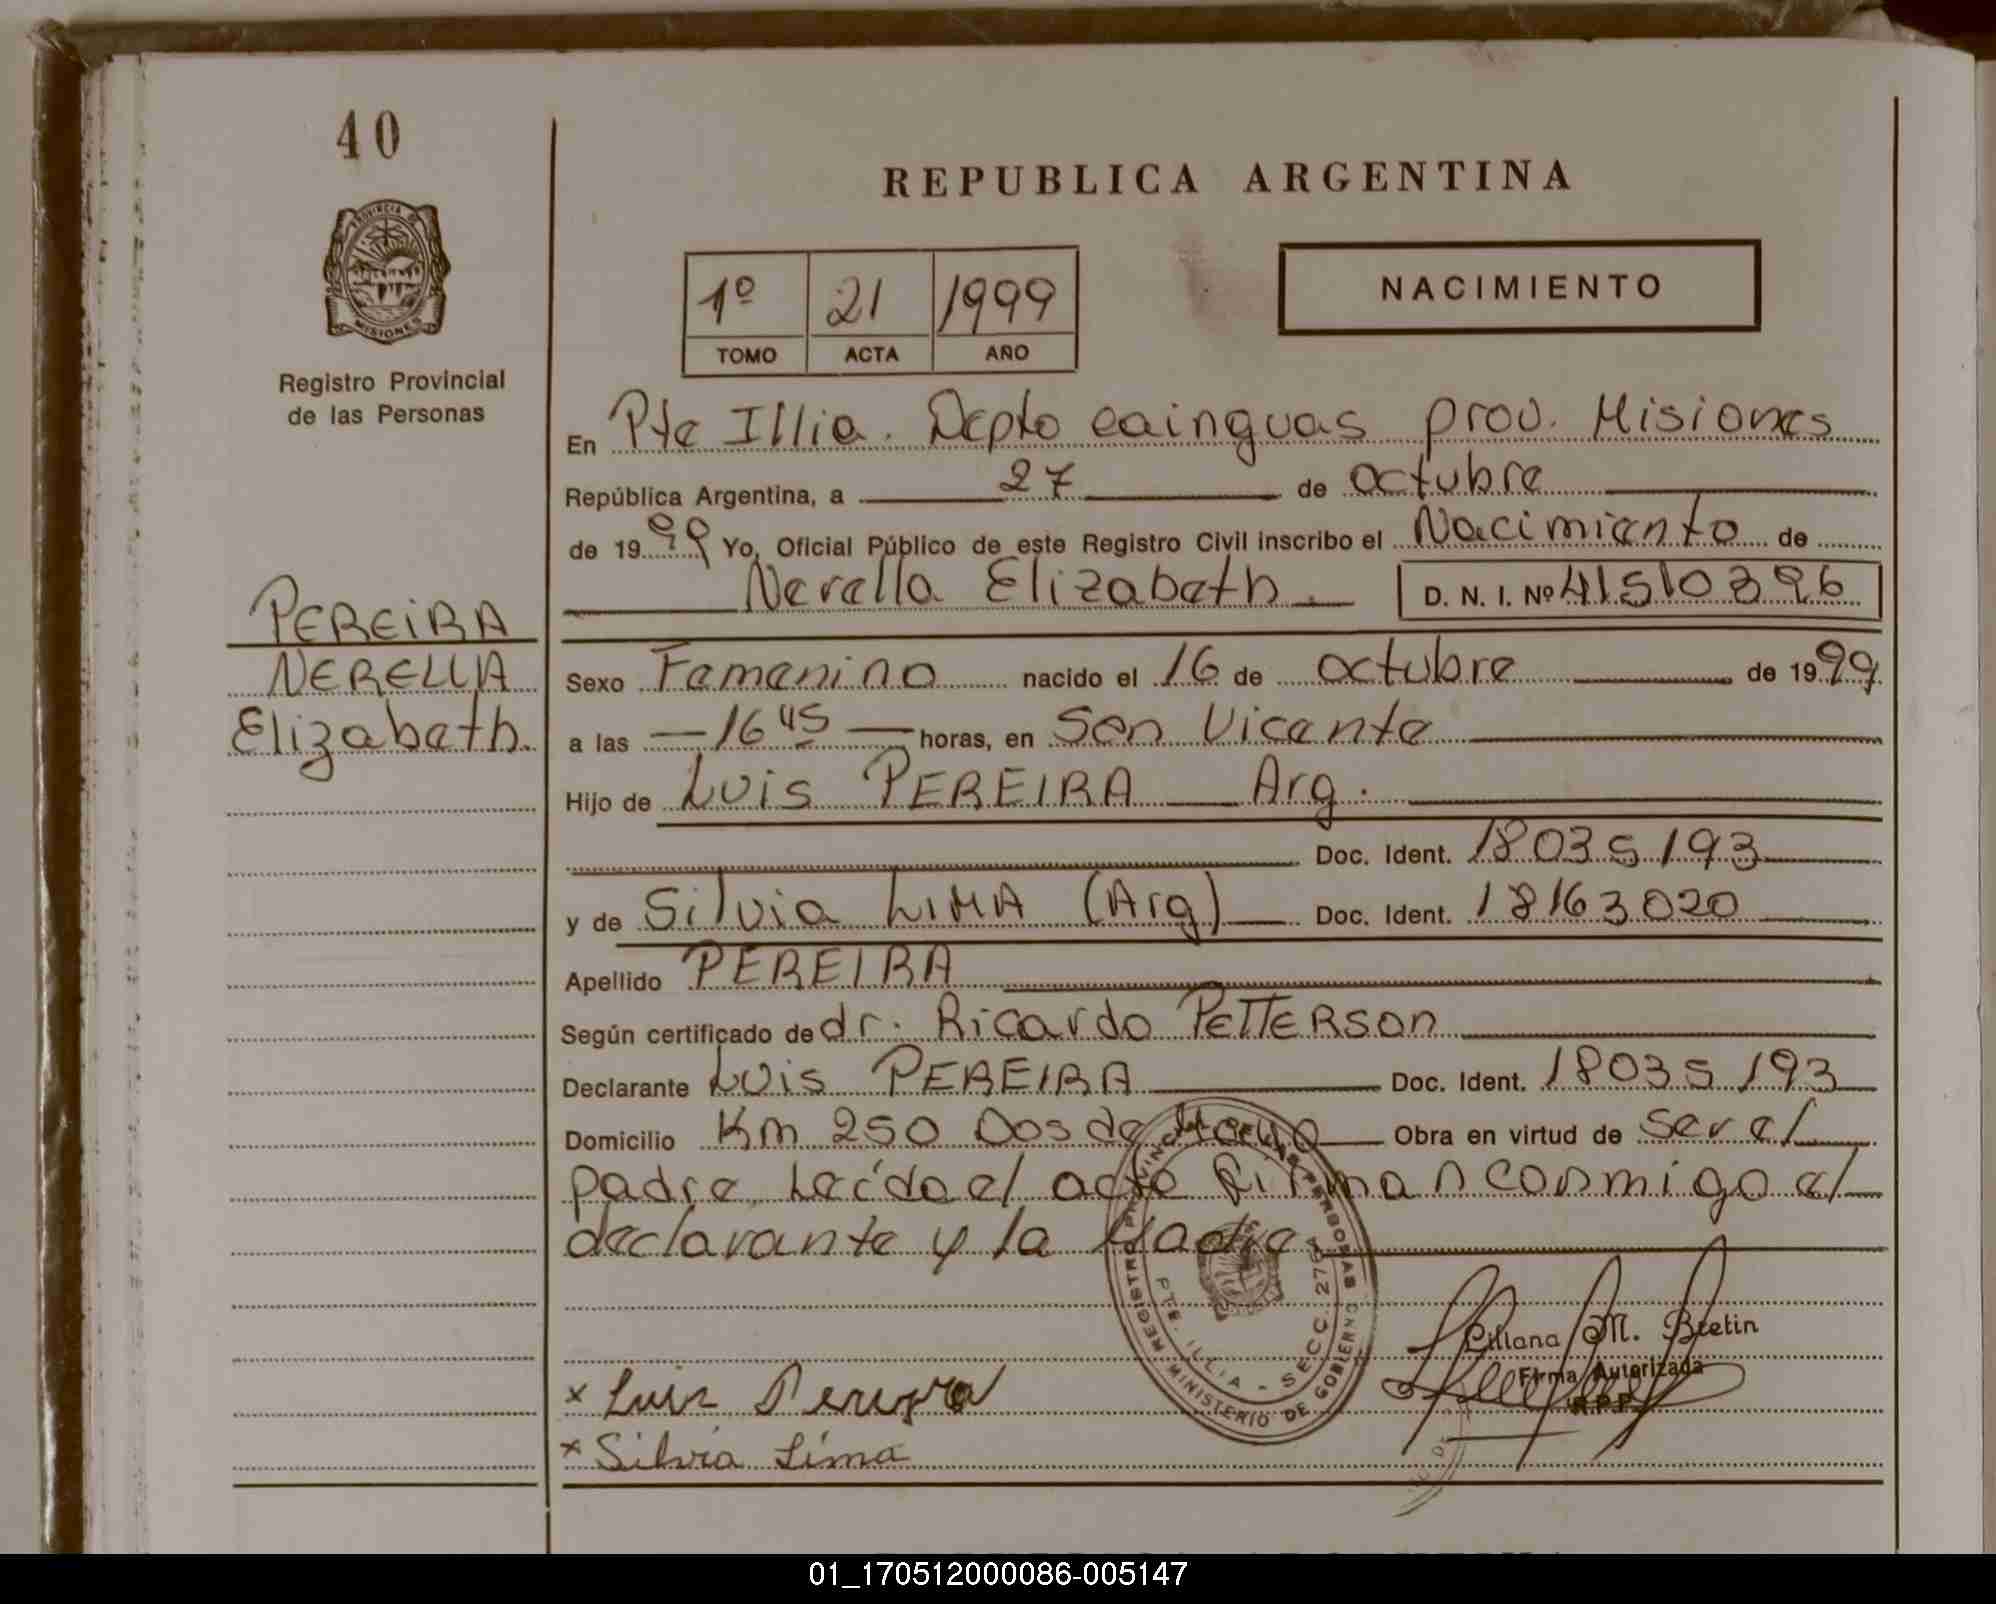 40
REPUBLICA ARGENTINA
PROVINCIA DE
MISIONES
Registro Provincial
de las Personas
1º 21 1999
TOMO ACTA AÑO
NACIMIENTO
En Pte Illia. Depto cainguas prov. Misiones
República Argentina, a 27 de octubre
de 1999 Yo, Oficial Público de este Registro Civil inscribo el Nacimiento de
Nerella Elizabeth. D. N. I. Nº 41510396
PEREIRA
NERELLA
Elizabeth.
Sexo Femenino nacido el 16 de octubre de 1999
a las 16 45 horas, en San Vicente
Hijo de Luis PEREIRA Arg.
Doc. Ident. 18035193
y de Silvia LIMA (Arg) Doc. Ident. 18163020
Apellido PEREIRA
Según certificado de dr. Ricardo PETTERSON
Declarante Luis PEREIRA Doc. Ident. 18035193
Domicilio Km 250 Dos de Mayo Obra en virtud de ser el
padre Leída el acta firman conmigo el
declarante y la Madre
REGISTRO PROVINCIAL DE LAS PERSONAS
MINISTERIO DE GOBIERNO
PTE. ILLIA - SECC. 275
Liliana M. Bretin
Firma Autorizada
R.P.P.
x Luis Pereyra
x Silvia Lima
01_170512000086-005147